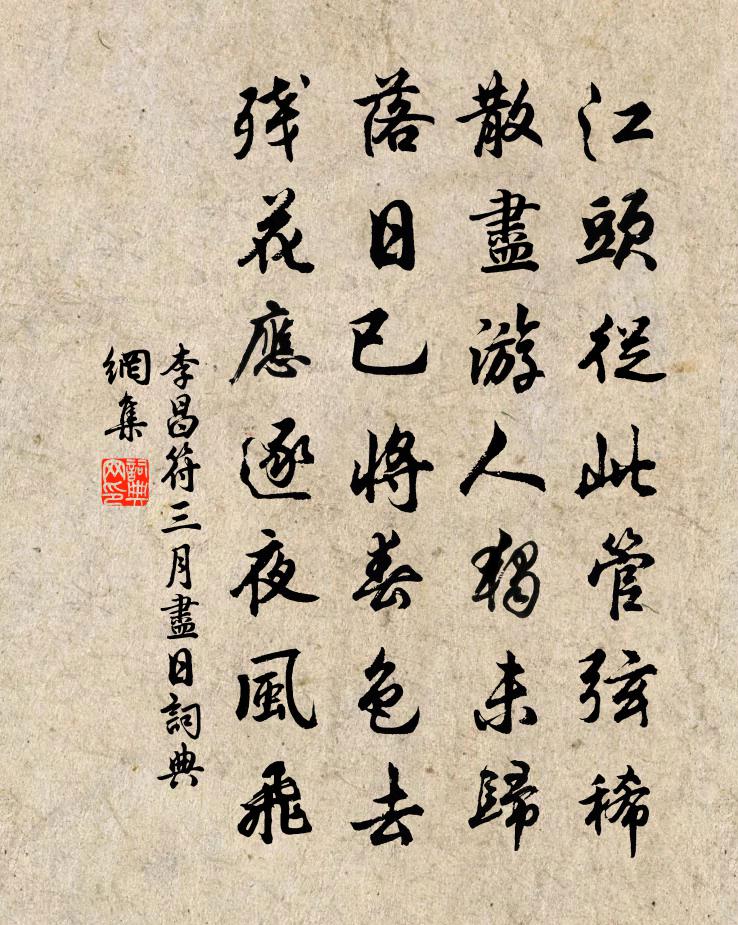 江頭從此管弦稀
散盡游人獨未歸
落日已將春色去
残花應逐夜風飛
李昌符三月盡日詞典
網集
詞典
网印